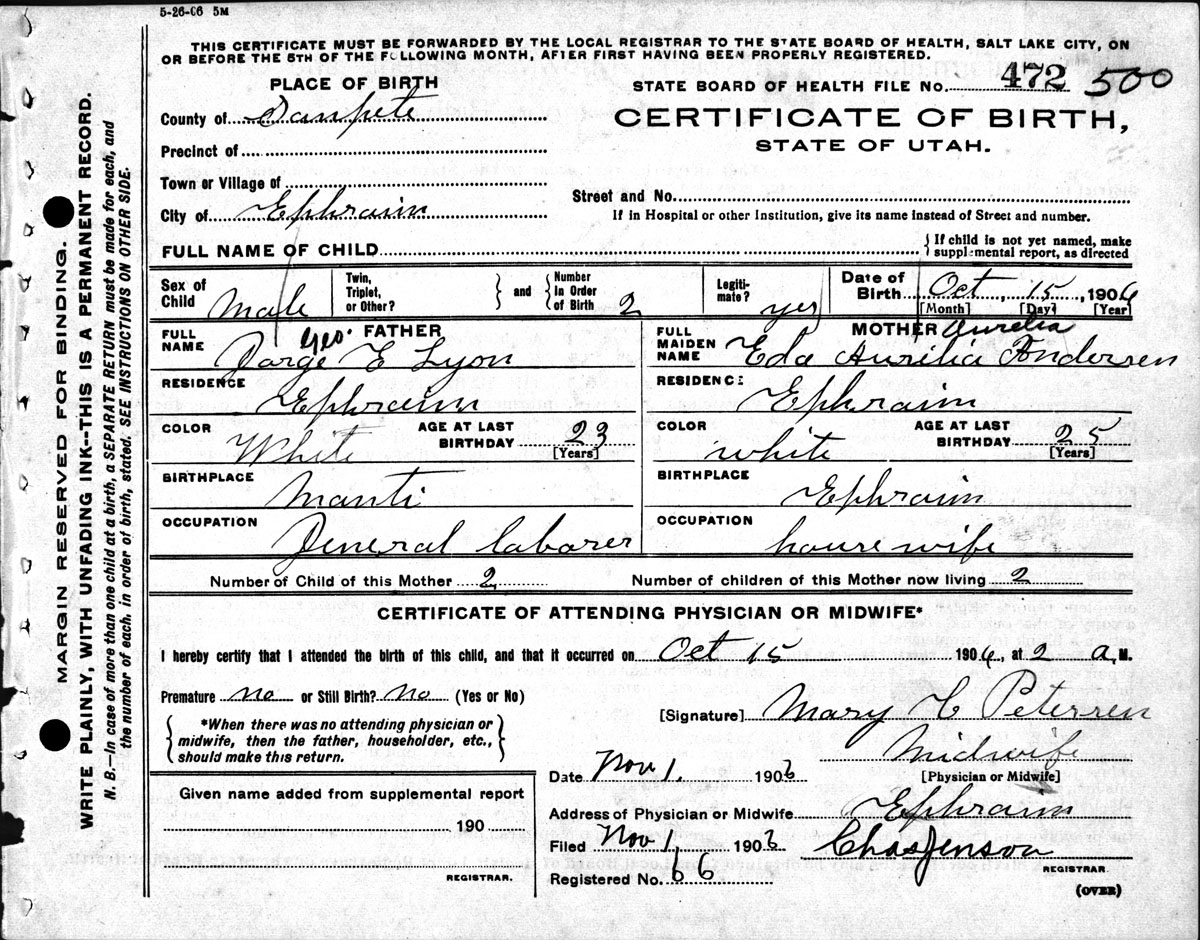 5-26-06 5M
THIS CERTIFICATE MUST BE FORWARDED BY THE LOCAL REGISTRAR TO THE STATE BOARD OF HEALTH, SALT LAKE CITY, ON
OR BEFORE THE 5TH OF THE FOLLOWING MONTH, AFTER FIRST HAVING BEEN PROPERLY REGISTERED.
PLACE OF BIRTH
STATE BOARD OF HEALTH FILE No. 472 500
County of Sanpete
CERTIFICATE OF BIRTH,
STATE OF UTAH.
Precinct of
Town or Village of
Street and No.
City of Ephraim
If in Hospital or other Institution, give its name instead of Street and number.
FULL NAME OF CHILD
{ If child is not yet named, make
supplemental report, as directed
Sex of Child Male
Twin, Triplet, or Other? } and { Number In Order of Birth 2
Legitimate? yes
Date of Birth Oct, 15, 1906
[Month] [Day] [Year]
FATHER
FULL NAME Jorge E Lyon
Geo.
MOTHER
FULL MAIDEN NAME Eda Aurilia Andersen
Aurelia
RESIDENCE Ephraim
RESIDENCE Ephraim
COLOR White AGE AT LAST BIRTHDAY 23
[Years]
COLOR white AGE AT LAST BIRTHDAY 25
[Years]
BIRTHPLACE Manti
BIRTHPLACE Ephraim
OCCUPATION General laborer
OCCUPATION house wife
Number of Child of this Mother 2 Number of children of this Mother now living 2
CERTIFICATE OF ATTENDING PHYSICIAN OR MIDWIFE*
I hereby certify that I attended the birth of this child, and that it occurred on Oct 15 1906, at 2 a.M.
Premature no or Still Birth? no (Yes or No)
{ *When there was no attending physician or
midwife, then the father, householder, etc.,
should make this return. }
[Signature] Mary C Petersen
Midwife
[Physician or Midwife]
Date Nov 1. 1906
Address of Physician or Midwife Ephraim
Given name added from supplemental report
190
REGISTRAR.
Filed Nov 1, 1906 Chas Jenson
REGISTRAR
Registered No. 66
(OVER)
MARGIN RESERVED FOR BINDING.
WRITE PLAINLY, WITH UNFADING INK--THIS IS A PERMANENT RECORD.
N. B.—In case of more than one child at a birth, a SEPARATE RETURN must be made for each, and
the number of each, in order of birth, stated. SEE INSTRUCTIONS ON OTHER SIDE.